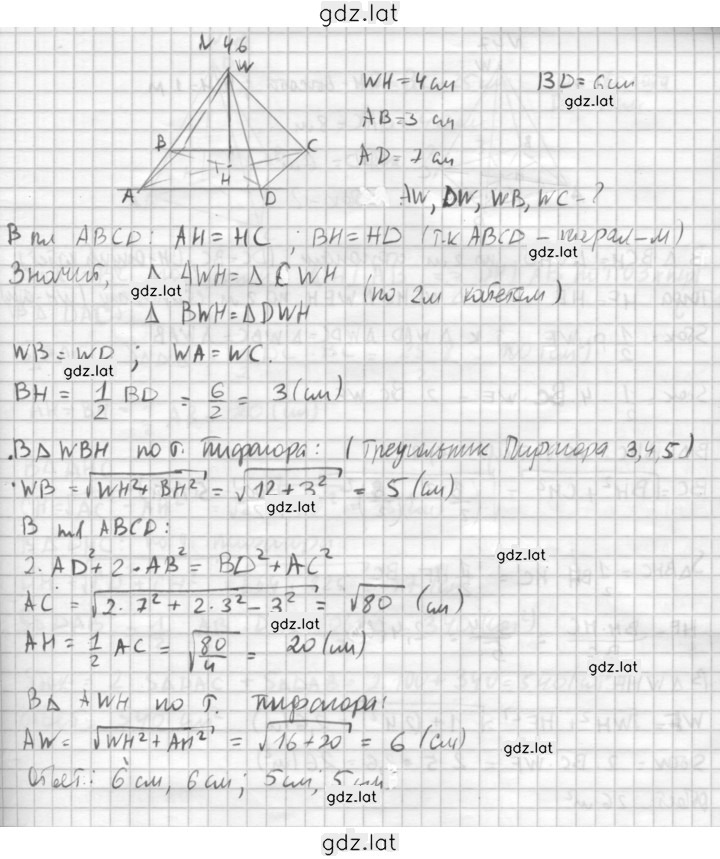 gdz.lat
N 46
W
B
C
H
A
D
WH = 4 см BD = 6 см
gdz.lat
AB = 3 см
AD = 7 см
AW, DW, WB, WC - ?
В пл ABCD: AH = HC ; BH = HD (т.к ABCD - парал-м)
gdz.lat
Значит, Δ AWH = Δ CWH
gdz.lat
(по 2м катетам)
Δ BWH = Δ DWH
WB = WD ; WA = WC.
gdz.lat
BH = 1/2 BD = 6/2 = 3 (см)
В Δ WBH по т. Пифагора: (Треугольник Пифагора 3,4,5)
WB = √(WH² + BH²) = √(12 + 3²) = 5 (см)
gdz.lat
В пл ABCD:
gdz.lat
2 · AD² + 2 · AB² = BD² + AC²
AC = √(2 · 7² + 2 · 3² - 3²) = √80 (см)
gdz.lat
AH = 1/2 AC = √(80/4) = 20 (см)
gdz.lat
В Δ AWH по т. Пифагора:
AW = √(WH² + AH²) = √(16 + 20) = 6 (см)
gdz.lat
Ответ: 6 см, 6 см; 5 см, 5 см.
gdz.lat
gdz.lat